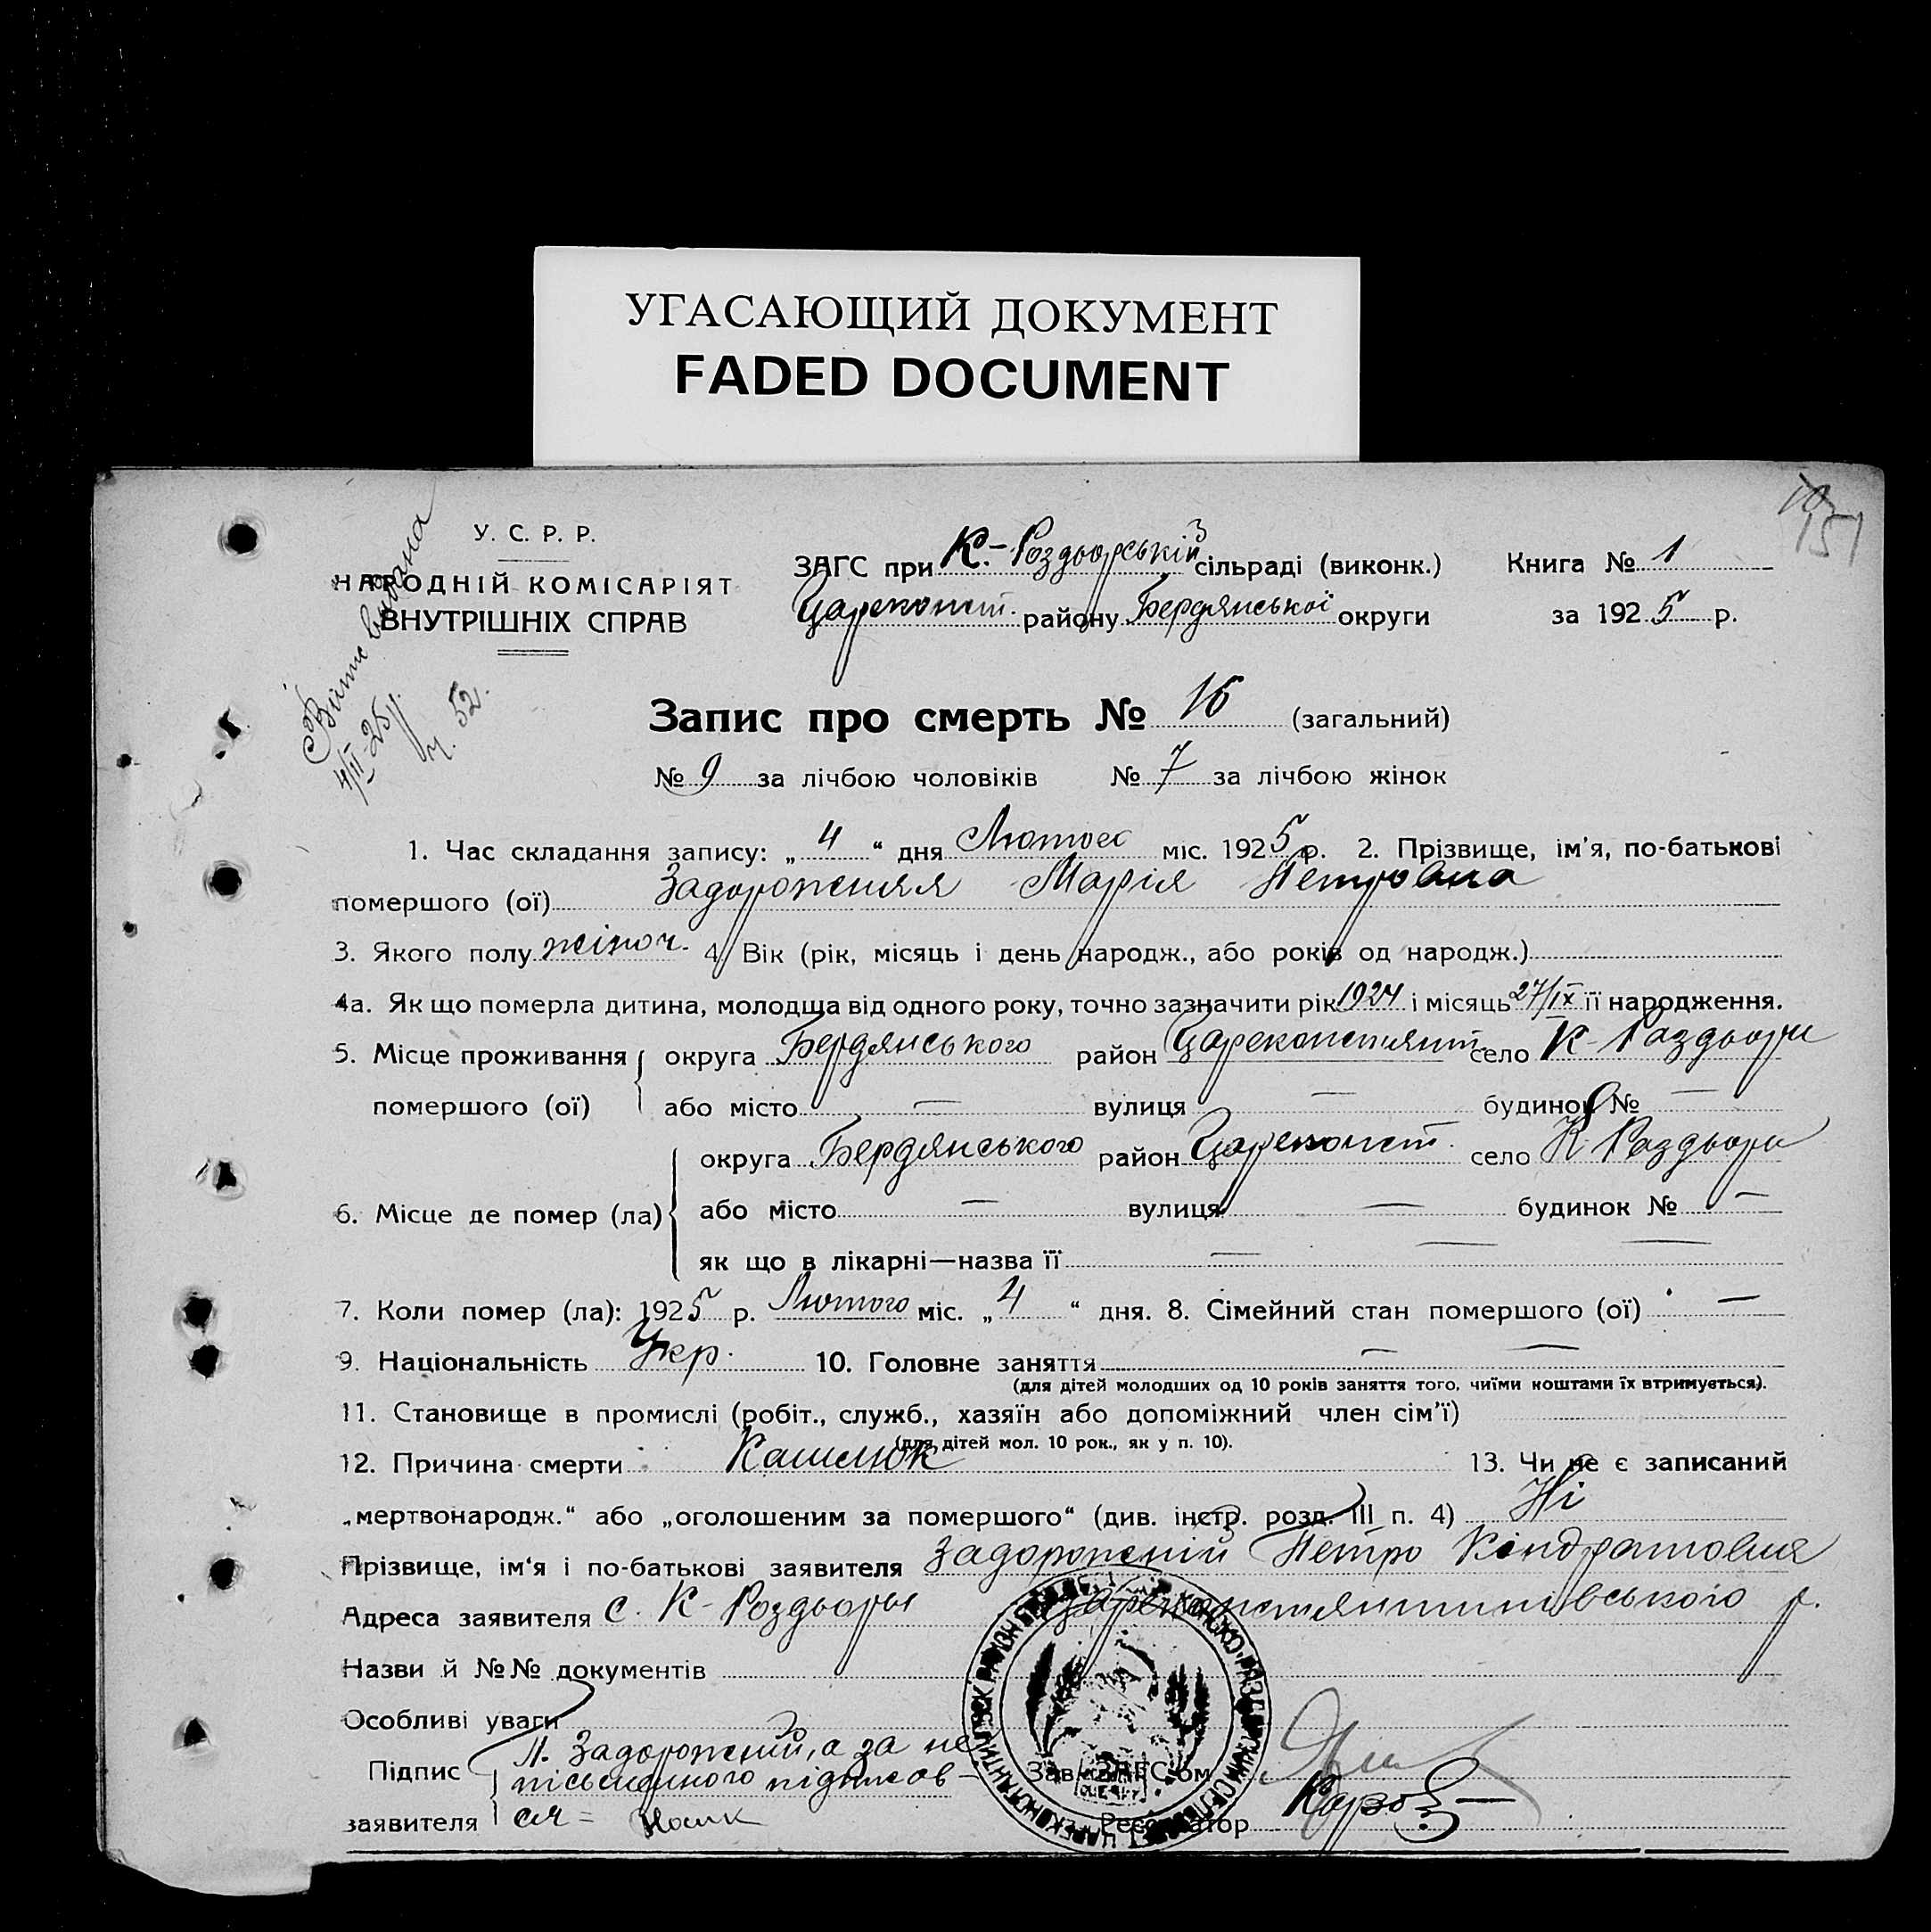 УГАСАЮЩИЙ ДОКУМЕНТ
FADED DOCUMENT
151
У. С. Р. Р.
НАРОДНІЙ КОМІСАРІЯТ
ВНУТРІШНІХ СПРАВ
видана
4/II-25 р.
ч. 52.
ЗАГС при К.-Роздьорській сільраді (виконк.) Книга № 1
Цареконст. району Бердянської округи за 1925 р.
Запис про смерть № 16 (загальний)
№ 9 за лічбою чоловіків № 7 за лічбою жінок
1. Час складання запису: „4“ дня Лютого міс. 1925 р. 2. Прізвище, ім'я, по-батькові
помершого (ої) Задорожняя Марія Петровна
3. Якого полу жіноч. 4. Вік (рік, місяць і день народж., або років од народж.)
4а. Як що померла дитина, молодща від одного року, точно зазначити рік 1924 і місяць 27/IX її народження.
5. Місце проживання округа Бердянського район Цареконстянт. село К-Раздьори
помершого (ої) або місто — вулиця — будинок № —
округа Бердянського район Цареконст. село К. Раздьори
6. Місце де помер (ла) або місто — вулиця — будинок № —
як що в лікарні—назва її — — —
7. Коли помер (ла): 1925 р. Лютого міс. „4“ дня. 8. Сімейний стан помершого (ої) —
9. Національність Укр. 10. Головне заняття — —
(для дітей молодших од 10 років заняття того, чиїми коштами їх втримується).
11. Становище в промислі (робіт., служб., хазяїн або допоміжний член сім'ї)
(для дітей мол. 10 рок., як у п. 10).
12. Причина смерти Кашлюк 13. Чи не є записаний
„мертвонародж.“ або „оголошеним за помершого“ (див. інстр. розд. III п. 4) Ні
Прізвище, ім'я і по-батькові заявителя Задорожній Петро Кіндратовия
Адреса заявителя с. К-Роздьоры Цареконстянтинівського р.
Назви й №№ документів
Особливі уваги
Підпис П. Задорожний, а за не
письменного підписов-
заявителя ся =
Зав. ЗАГС'ом
Реєстратор